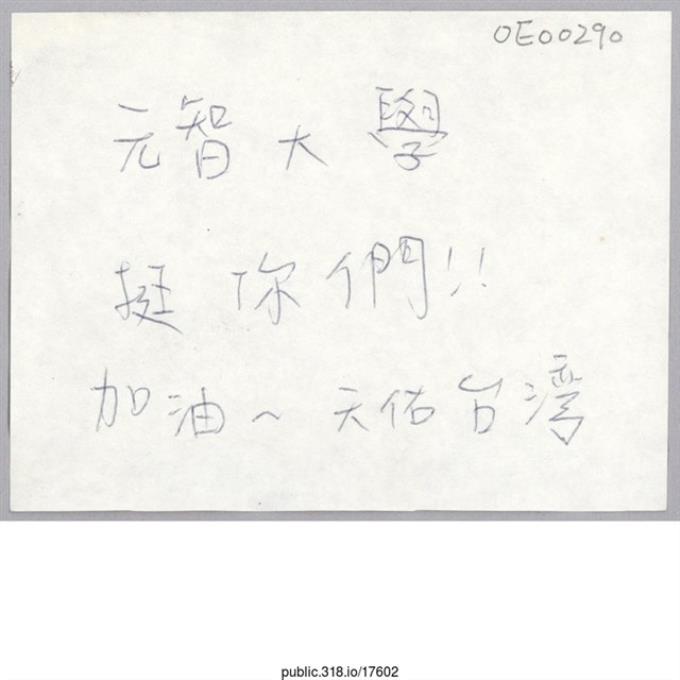 OE00290
元智大學
挺你們!!
加油~天佑台湾
public.318.io/17602